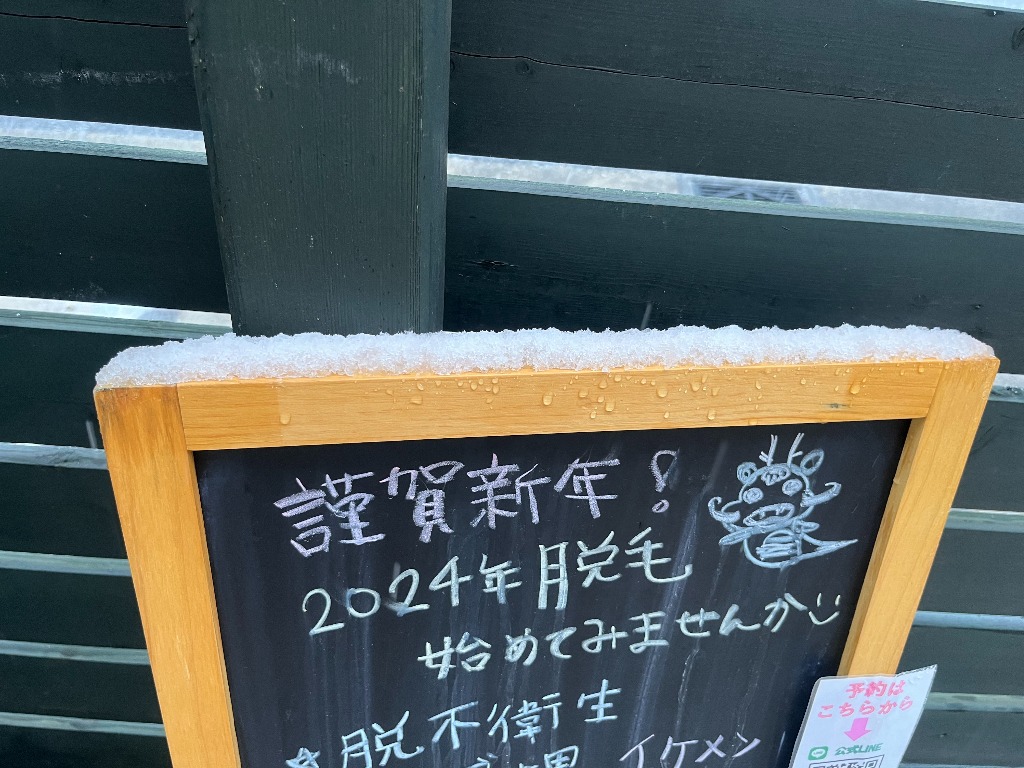 謹賀新年!
2024年脱毛
始めてみませんか
☆脱不衛生
男 イケメン
予約は
こちらから
公式LINE